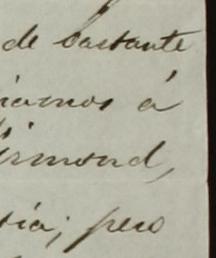 de bastante
iamos á
irmond,
sia; pero